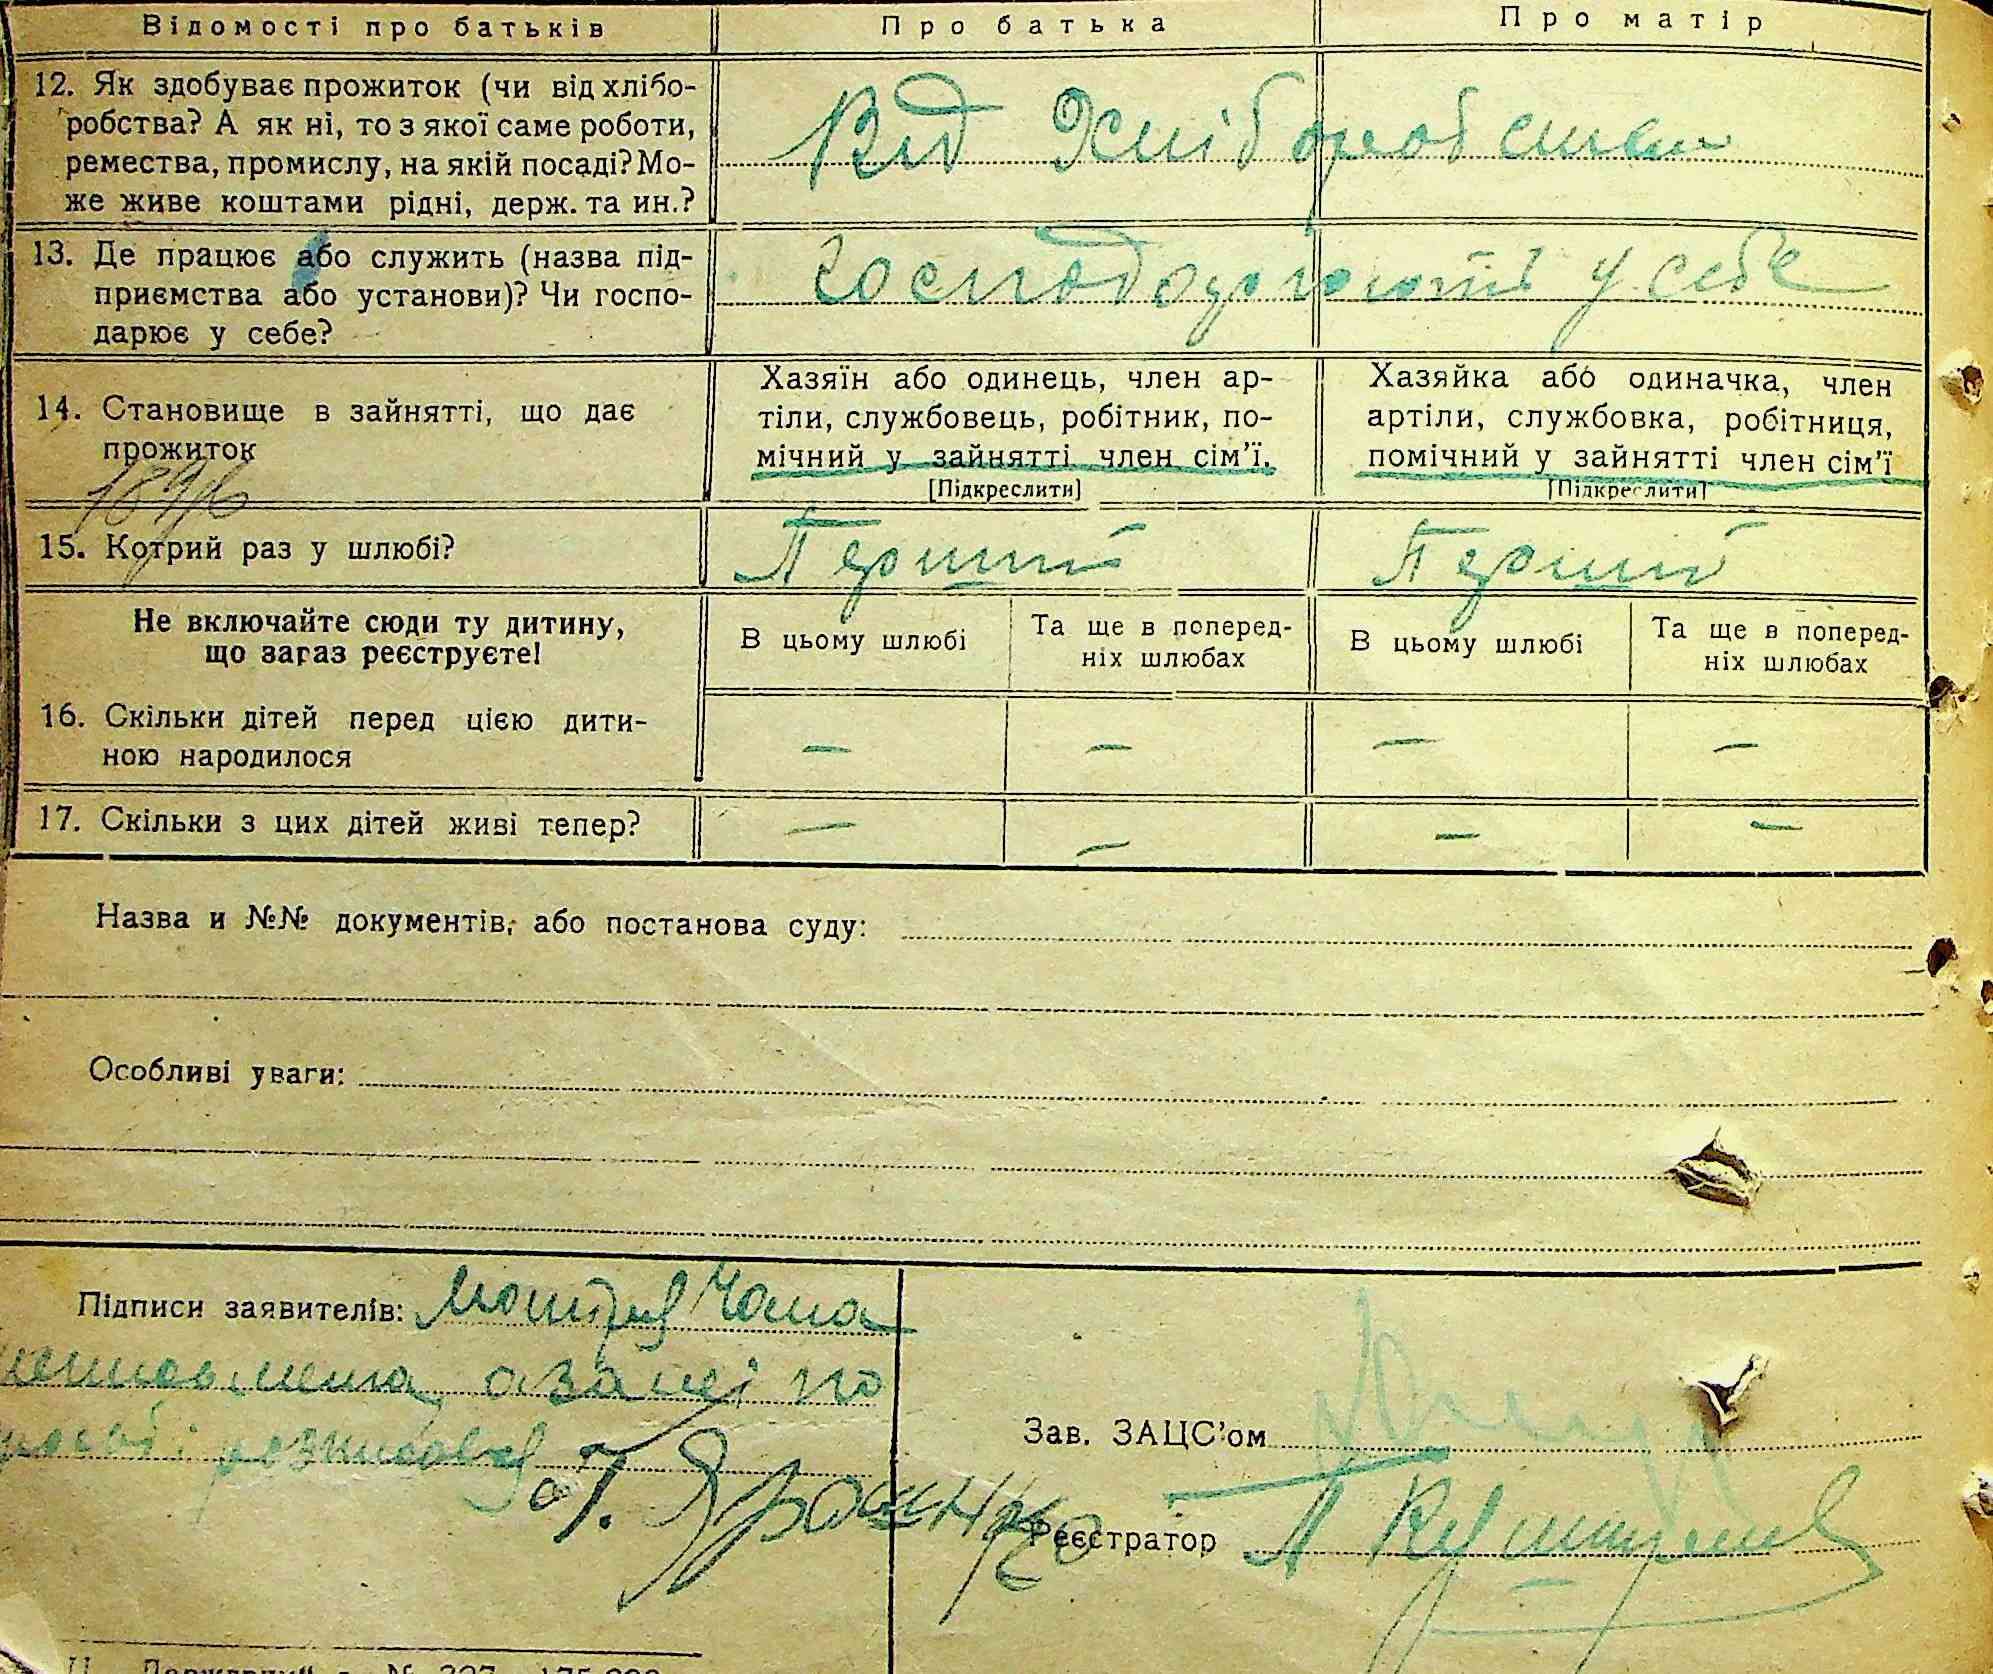 Відомості про батьків Про батька Про матір
12. Як здобуває прожиток (чи від хлібо-
робства? А як ні, то з якої саме роботи,
ремества, промислу, на якій посаді? Мо-
же живе коштами рідні, держ. та ин.?
Від Хліборобства
13. Де працює або служить (назва під-
приємства або установи)? Чи госпо-
дарює у себе?
Господорюють у себе
14. Становище в зайнятті, що дає
прожиток
Хазяїн або одинець, член ар-
тіли, службовець, робітник, по-
мічний у зайнятті член сім'ї.
[Підкреслити]
Хазяйка або одиначка, член
артіли, службовка, робітниця,
помічний у зайнятті член сім'ї
[Підкреслити]
15. Котрий раз у шлюбі? Перший Перший
Не включайте сюди ту дитину,
що зараз реєструєте!
В цьому шлюбі
Та ще в поперед-
ніх шлюбах
В цьому шлюбі
Та ще в поперед-
ніх шлюбах
16. Скільки дітей перед цією дити-
ною народилося
— — — —
17. Скільки з цих дітей живі тепер? — — — —
Назва и №№ документів, або постанова суду:
Особливі уваги:
Підписи заявителів:
а за неї по
розписовся
Зав. ЗАЦС'ом
Реєстратор